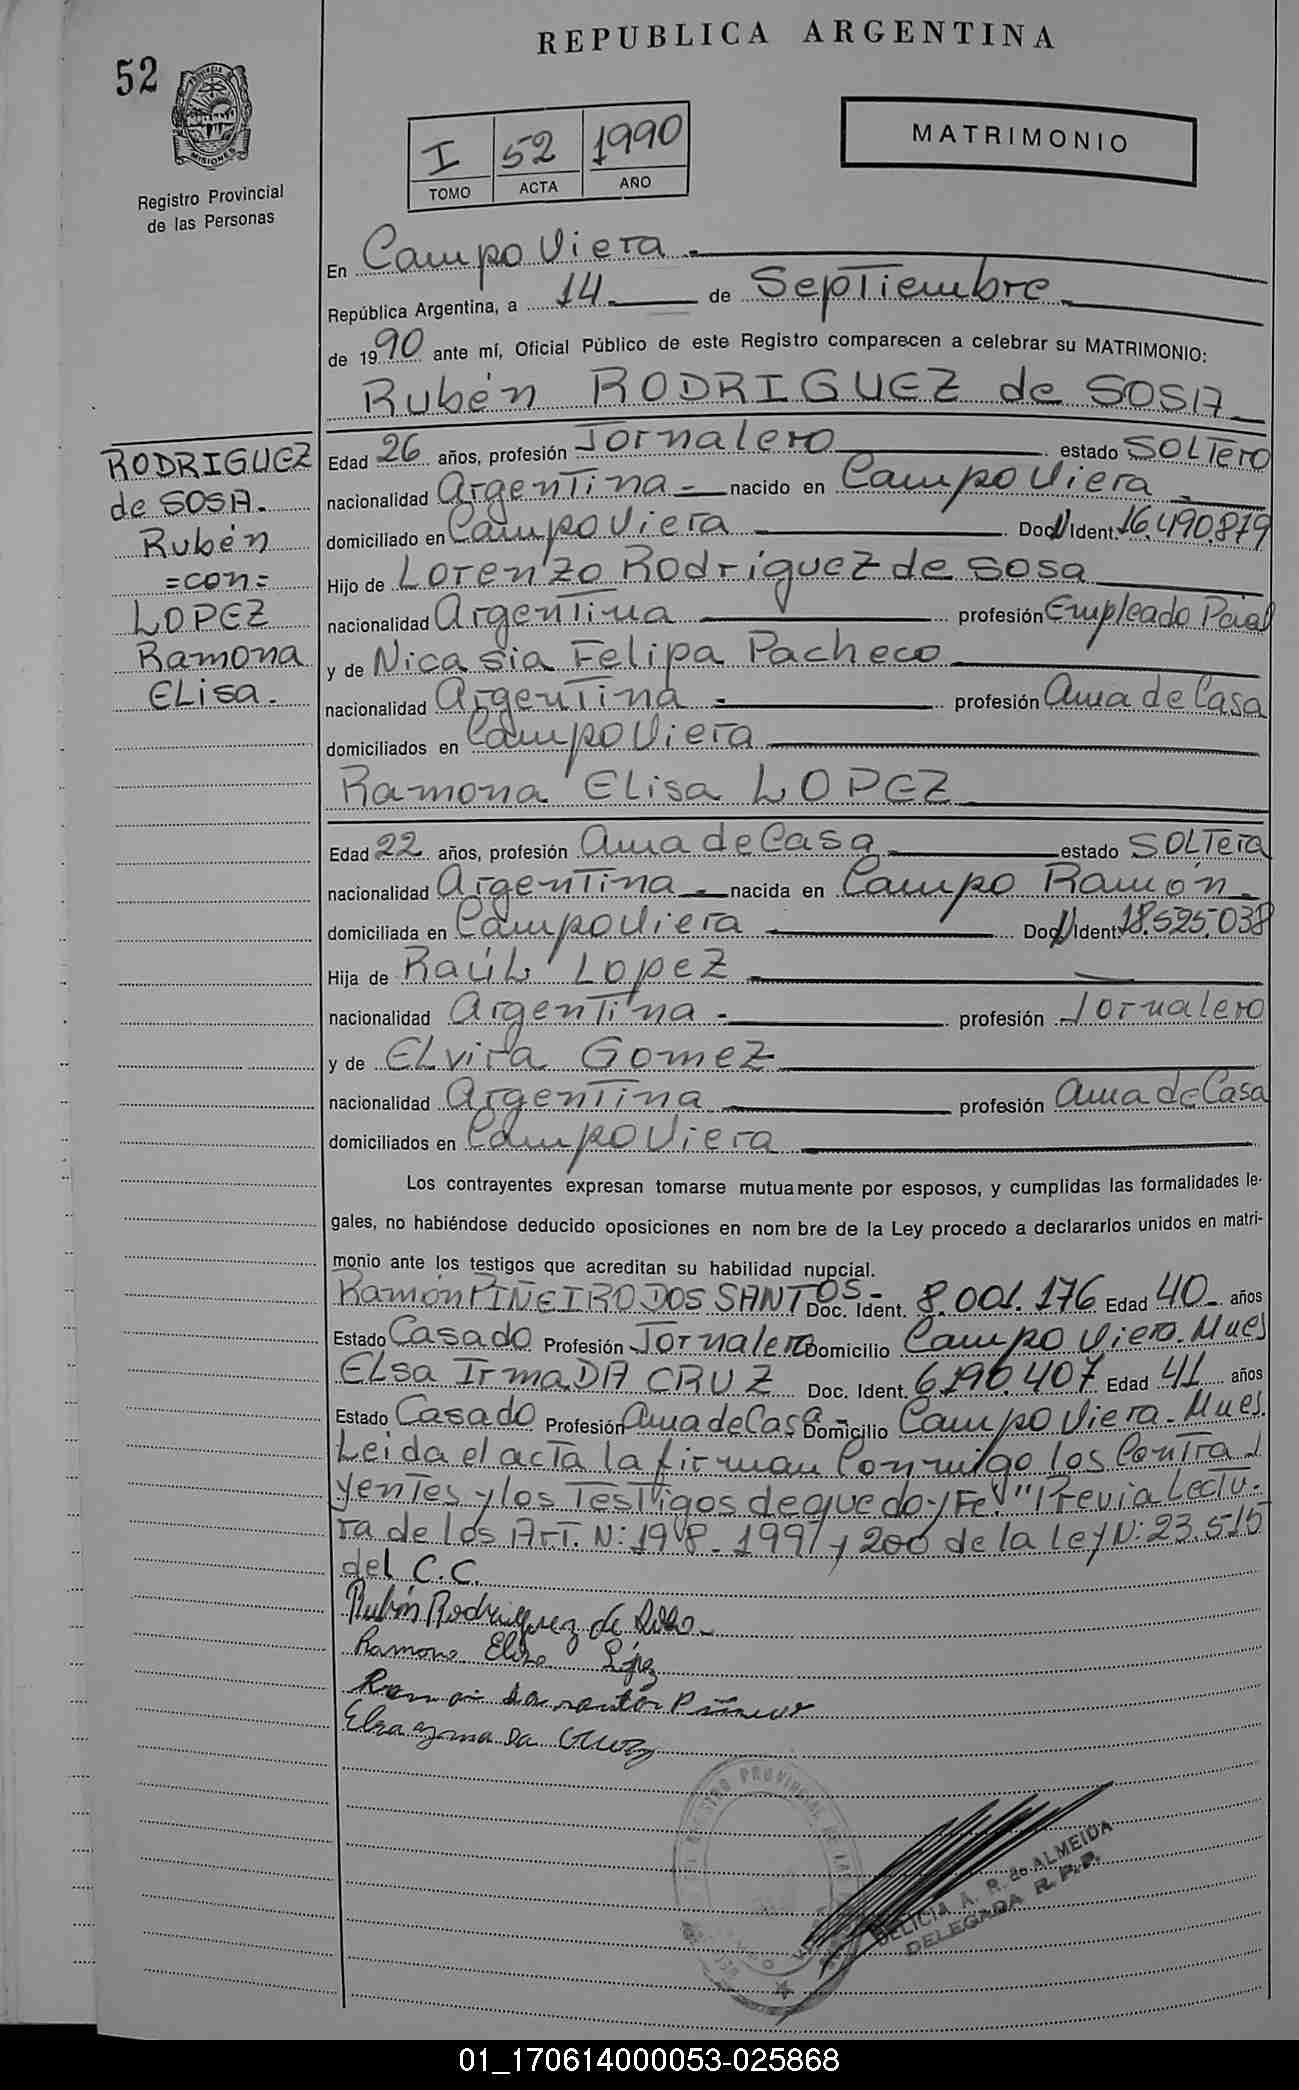 REPUBLICA ARGENTINA
52
MISIONES
Registro Provincial
de las Personas
I 52 1990
TOMO ACTA AÑO
MATRIMONIO
En Campo Viera.
República Argentina, a 14 de Septiembre
de 1990 ante mí, Oficial Público de este Registro comparecen a celebrar su MATRIMONIO:
Rubén RODRIGUEZ de SOSA
RODRIGUEZ
de SOSA.
Rubén
=con=
LOPEZ
Ramona
Elisa.
Edad 26 años, profesión Jornalero estado SOLTero
nacionalidad Argentina nacido en Campo Viera
domiciliado en Campo Viera Doc. Ident. 16.490.879
Hijo de Lorenzo Rodríguez de Sosa
nacionalidad Argentina profesión Empleado
y de Nicasia Felipa Pacheco
nacionalidad Argentina profesión Ama de Casa
domiciliados en Campo Viera
Ramona Elisa LOPEZ
Edad 22 años, profesión Ama de Casa estado SOLTera
nacionalidad Argentina nacida en Campo Ramón
domiciliada en Campo Viera Doc. Ident. 18.525.038
Hija de Raúl Lopez
nacionalidad Argentina profesión Jornalero
y de Elvira Gomez
nacionalidad Argentina profesión Ama de Casa
domiciliados en Campo Viera
Los contrayentes expresan tomarse mutuamente por esposos, y cumplidas las formalidades le-
gales, no habiéndose deducido oposiciones en nom bre de la Ley procedo a declararlos unidos en matri-
monio ante los testigos que acreditan su habilidad nupcial.
Ramón PIÑEIRO DOS SANTOS- Doc. Ident. 8.001.176 Edad 40 años
Estado Casado Profesión Jornalero Domicilio Campo Viera. Mnes
Elsa Irma DA CRUZ Doc. Ident. 6.190.407 Edad 41 años
Estado Casado Profesión Ama de Casa Domicilio Campo Viera. Mnes.
Leida el acta la firman Conmigo los Contra
yentes y los Testigos de que doy Fe. "Previa Lectu-
ra de los Art. N: 198-199 y 200 de la ley N: 23.515
del C.C.
Rubén Rodriguez de Sosa
Ramona Elisa López
Ramon dos santos Piñeiro
Elsa yrma Da Cruz
REGISTRO PROVINCIAL DE LAS
DELICIA A. R. de ALMEIDA
DELEGADA R.P.P.
01_170614000053-025868